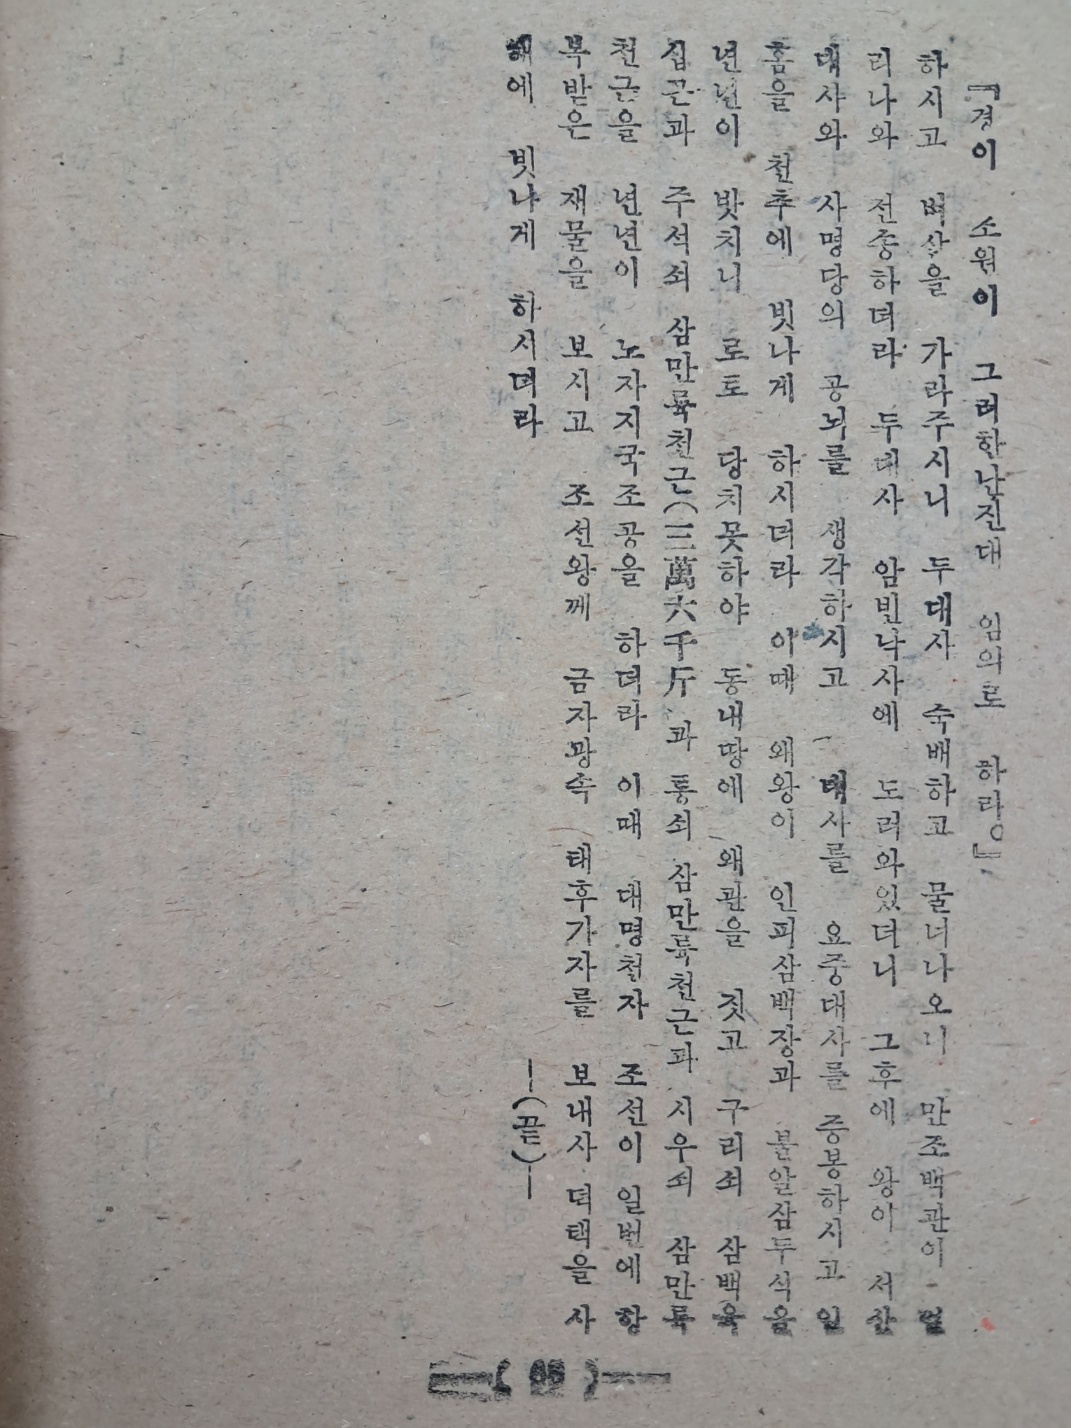 『경이 소원이 그러한난진대 임의로 하라。』
하시고 벼살을 가라주시니 두대사 숙배하고 물너나오니 만조백관이
리나와 전송하며라 두대사 암빈낙사에 도러와있더니 그후에 왕이 서산
대사와 사명당의 공뇌를 생각하시고 대사를 요중대사를 중봉하시고 일
홈을 천추에 빗나게 하시더라 이때 왜왕이 인피삼백장과 불알삼두식을
년년이 밧치니 로토 당치못하야 동내땅에 왜관을 짓고 구리쇠 삼백육
십근과 주석쇠 삼만륙천근(三萬六千斤과 통쇠 삼만륙천근과 시우쇠 삼만륙
천근을 년년이 노자지국조공을 하며라 이때 대명천자 조선이 일번에 항
복받은 재물을 보시고 조선왕께 금자광속 태후가자를 보내사 덕택을 사
해에 빗나게 하시며라 —(끝)—